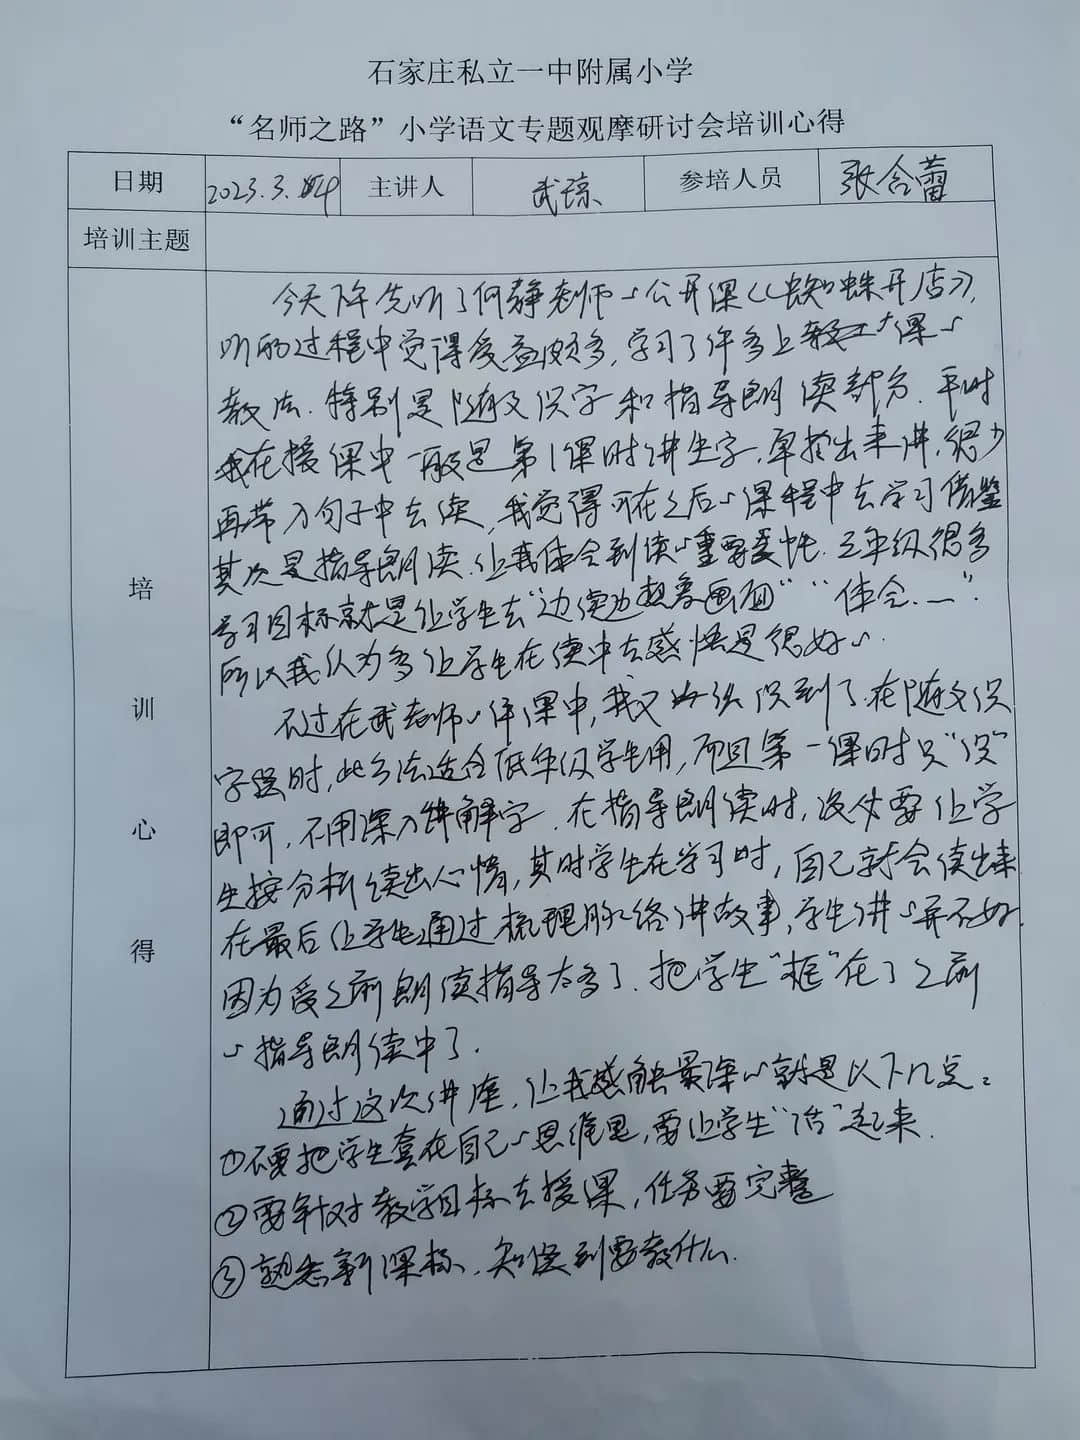 石家庄私立一中附属小学
“名师之路”小学语文专题观摩研讨会培训心得
日期 2023.3.4 主讲人 武琼 参培人员 张含蕾
培训主题
培训心得
今天下午先听了何静老师的公开课《蜘蛛开店》,
听的过程中觉得受益颇多,学习了许多上课的
教法.特别是随文识字和指导朗读部分.平时
我在授课中一般是第1课时讲生字,单拎出来讲,很少
再带入句子中去读,我觉得可在之后的课程中去学习借鉴
其次是指导朗读.让我体会到读的重要性.三年级很多
学习目标就是让学生去“边读边想象画面”“体会……”.
所以我认为多让学生在读中去感悟是很好的.
不过在武老师的评课中,我又认识到了在随文识
字时,此方法适合低年级学生用,而且第一课时只“识”
即可,不用深入讲解字.在指导朗读时,没必要让学
生按分析读出心情,其时学生在学习时,自己就会读出来
在最后让学生通过梳理脉络讲故事,学生讲的并不好.
因为受之前朗读指导太多了.把学生“框”在了之前
的指导朗读中了.
通过这次讲座,让我感触最深的就是以下几点:
①不要把学生套在自己的思维里,要让学生“活”起来.
②要针对教学目标去授课,任务要完整
③熟悉新课标,知道到要教什么.